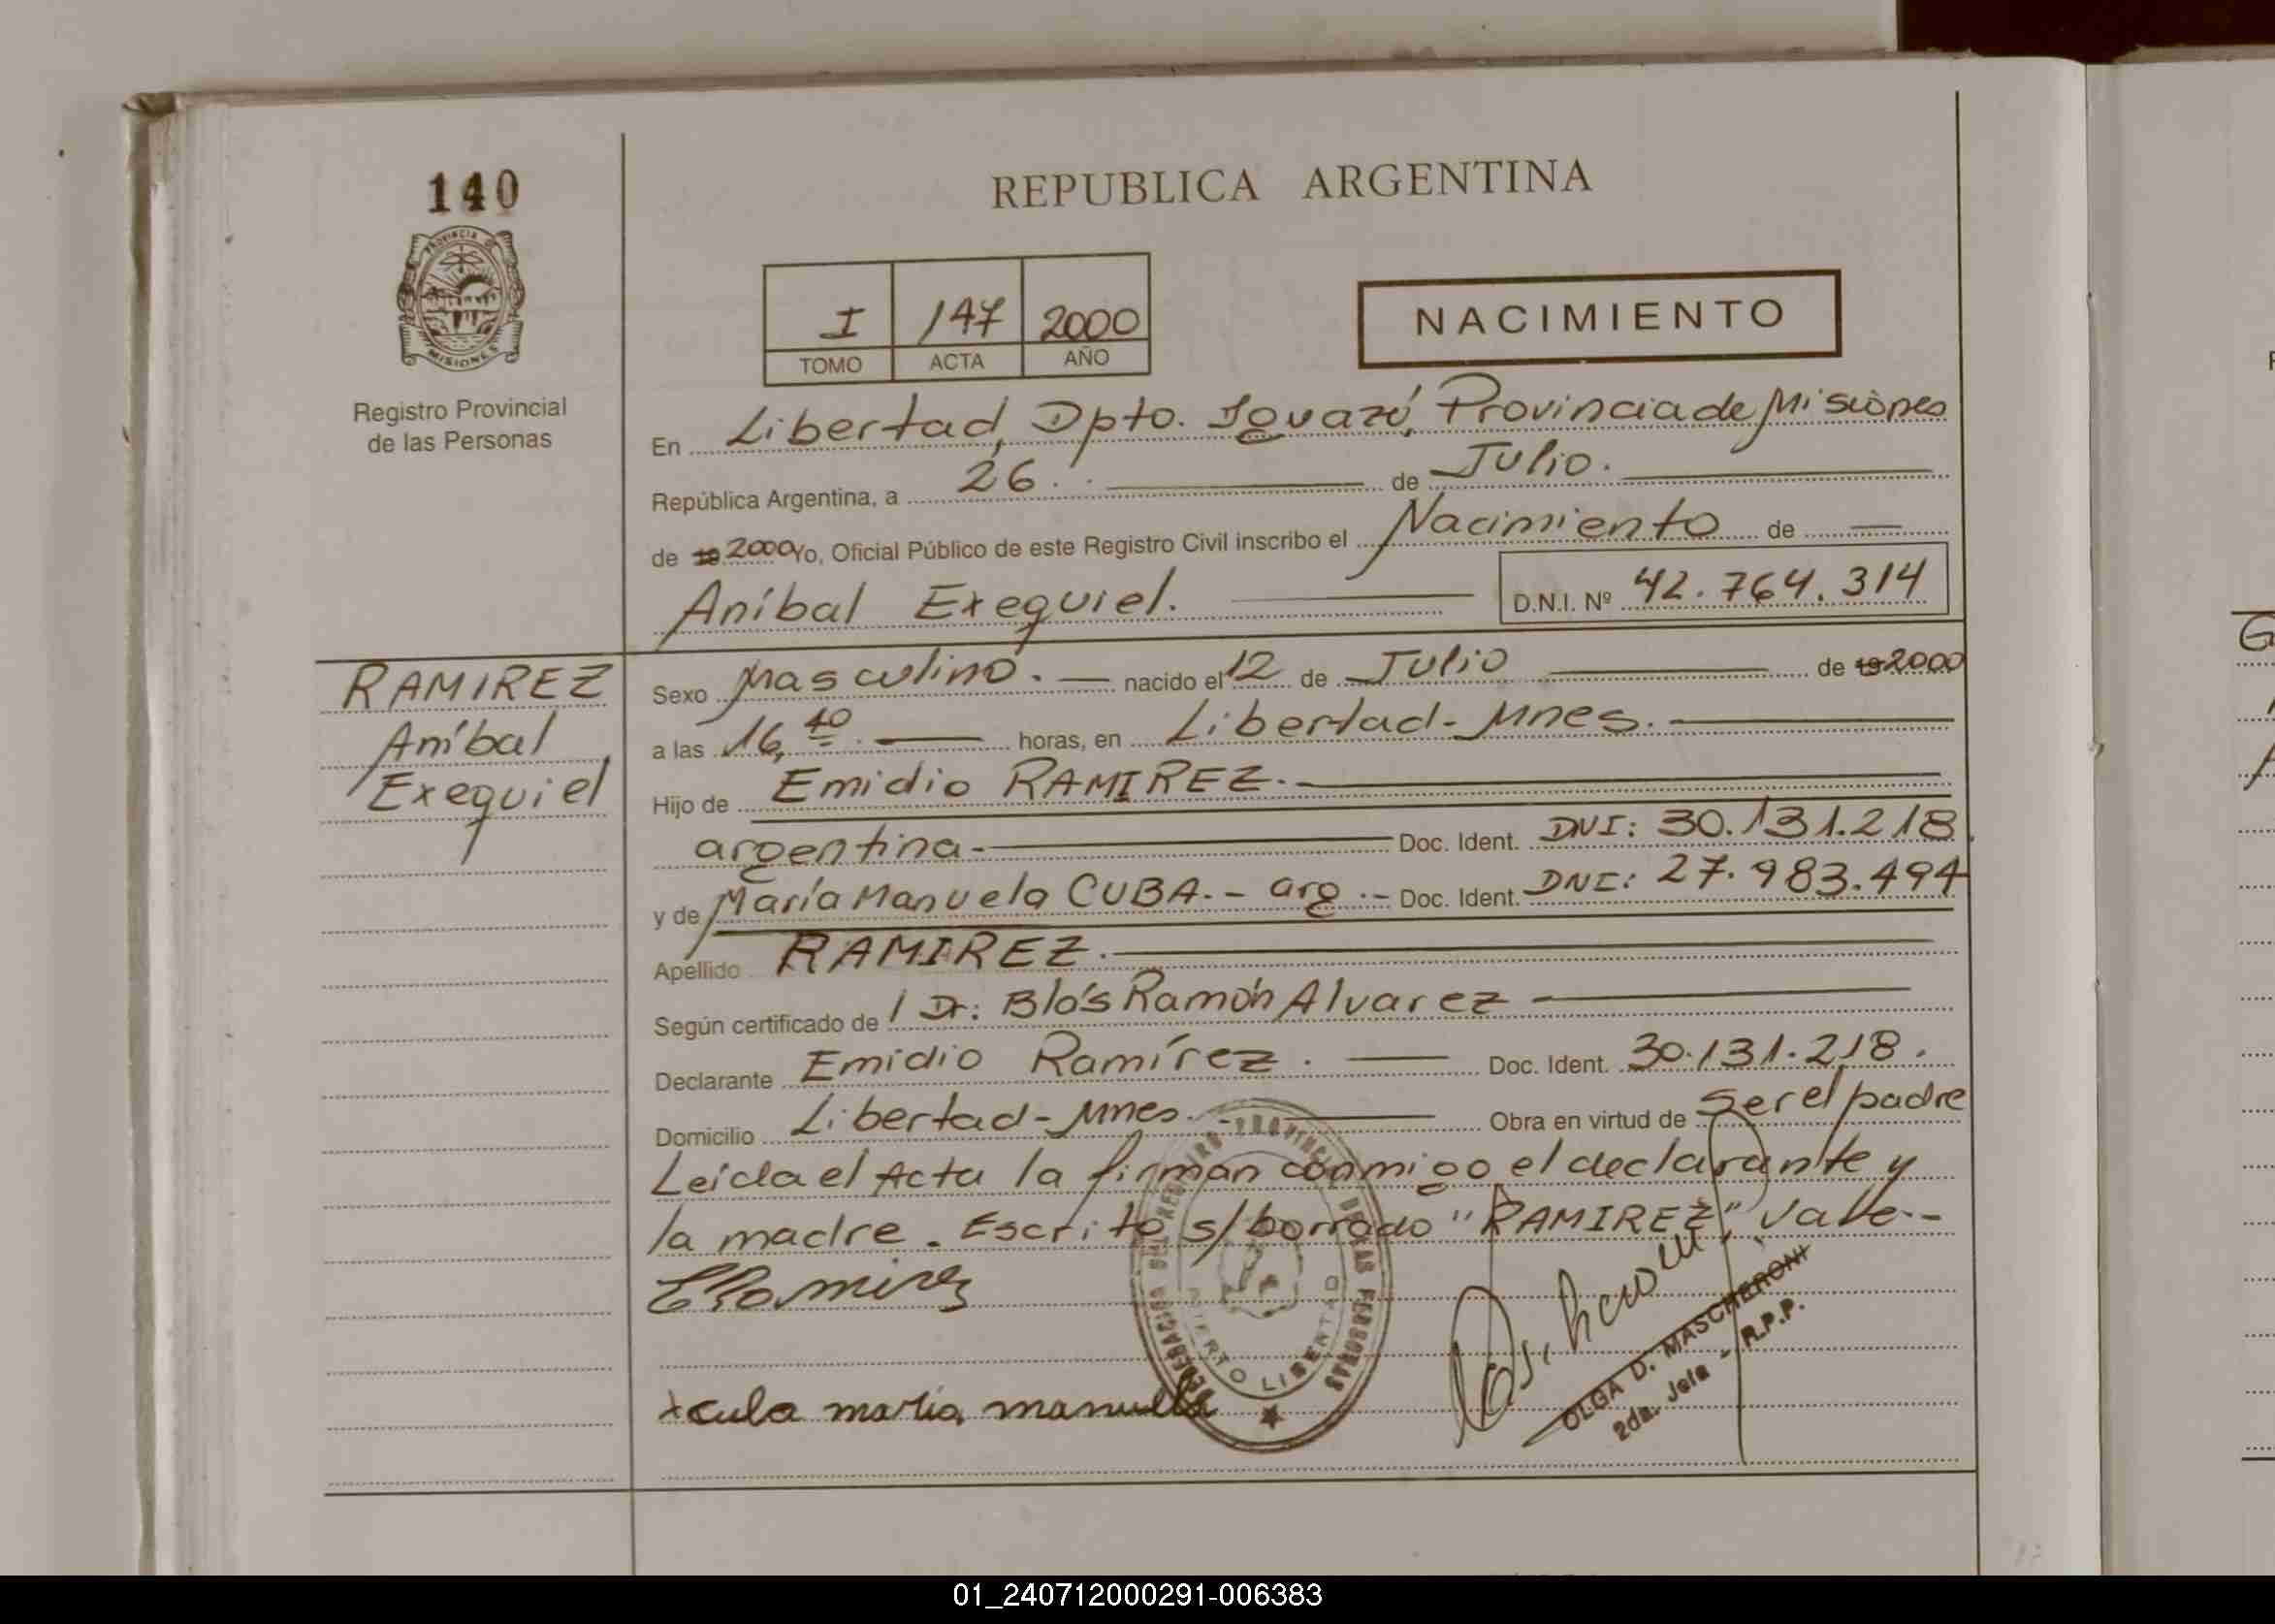 140
PROVINCIA DE
MISIONES
Registro Provincial
de las Personas
REPUBLICA ARGENTINA
I 147 2000
TOMO ACTA AÑO
NACIMIENTO
En Libertad, Dpto. Iguazú, Provincia de Misiones
República Argentina, a 26. de Julio.
de 19 2000 Yo, Oficial Público de este Registro Civil inscribo el Nacimiento de
Aníbal Exequiel. D.N.I. Nº 42.764.314
RAMIREZ
Aníbal
Exequiel
Sexo Masculino. nacido el 12 de Julio de 19 2000
a las 16,40. horas, en Libertad - Mnes.
Hijo de Emidio RAMIREZ.
argentina - Doc. Ident. DNI: 30.131.218.
y de María Manuela CUBA. - arg. - Doc. Ident. DNI: 27.983.494
Apellido RAMIREZ.
Según certificado de Dr: Blás Ramón Alvarez
Declarante Emidio Ramírez. Doc. Ident. 30.131.218.
Domicilio Libertad - Mnes. Obra en virtud de Ser el padre
Leída el Acta la firman conmigo el declarante y
la madre. Escrito s/borrado "RAMIREZ", Vale. -
ERamirez
x cuba maria manuella
OLGA D. MASCHERONI
2da. Jefa - R.P.P.
REGISTRO PROVINCIAL DE LAS PERSONAS
PUERTO LIBERTAD
01_240712000291-006383